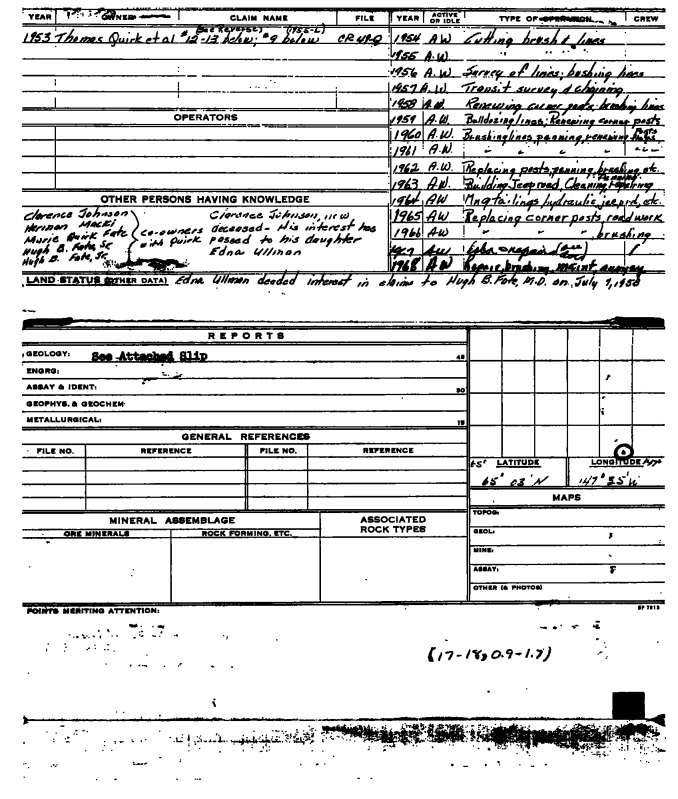 YEAR CLAIM NAME FILE YEAR ACTIVE OR IDLE TYPE OF OPERATION CREW
(See Reverse) (1955-L)
1953 Thomas Quirk et al #12-13 below, #9 below
1954 A W Cutting brush & lines
1955 A.W.
1956 A.W. Survey of lines, brushing lines
1957 A.W. Transit survey & chaining
1958 A.W. Renewing corner posts, brushing lines
OPERATORS
1959 A.W. Bulldozing lines; Renewing corner posts
1960 A.W. Brushing lines, panning, renewing posts
1961 A.W. " " " "
1962 A.W. Replacing posts, panning, brushing etc.
1963 A.W. Building Jeep road, Cleaning,
OTHER PERSONS HAVING KNOWLEDGE
1964 AW tailings hydraulic, etc.
1965 AW Replacing corner posts, road work
1966 AW " " , brushing
AW
1968 AW Repair, brushing
Clarence Johnson
Herman Macki
Marie Quirk Fate
Hugh B. Fate, Sr
Hugh B. Fate, Jr.
co-owners with Quirk
Clarence Johnson,
deceased - His interest has
passed to his daughter
Edna Ullman
LAND STATUS (OTHER DATA) Edna Ullman deeded interest in claims to Hugh B. Fate, M.D. on July 7, 1958
REPORTS
GEOLOGY: See Attached Slip
ENGRG:
ASSAY & IDENT:
GEOPHYS. & GEOCHEM
METALLURGICAL:
GENERAL REFERENCES
FILE NO. REFERENCE FILE NO. REFERENCE
65° LATITUDE LONGITUDE 147°
65° 03' N 147° 35' W
MAPS
MINERAL ASSEMBLAGE ASSOCIATED ROCK TYPES
ORE MINERALS ROCK FORMING, ETC.
TOPOG:
GEOL:
MINE:
ASSAY:
OTHER (& PHOTOS)
POINTS MERITING ATTENTION:
(17-18, 0.9-1.7)